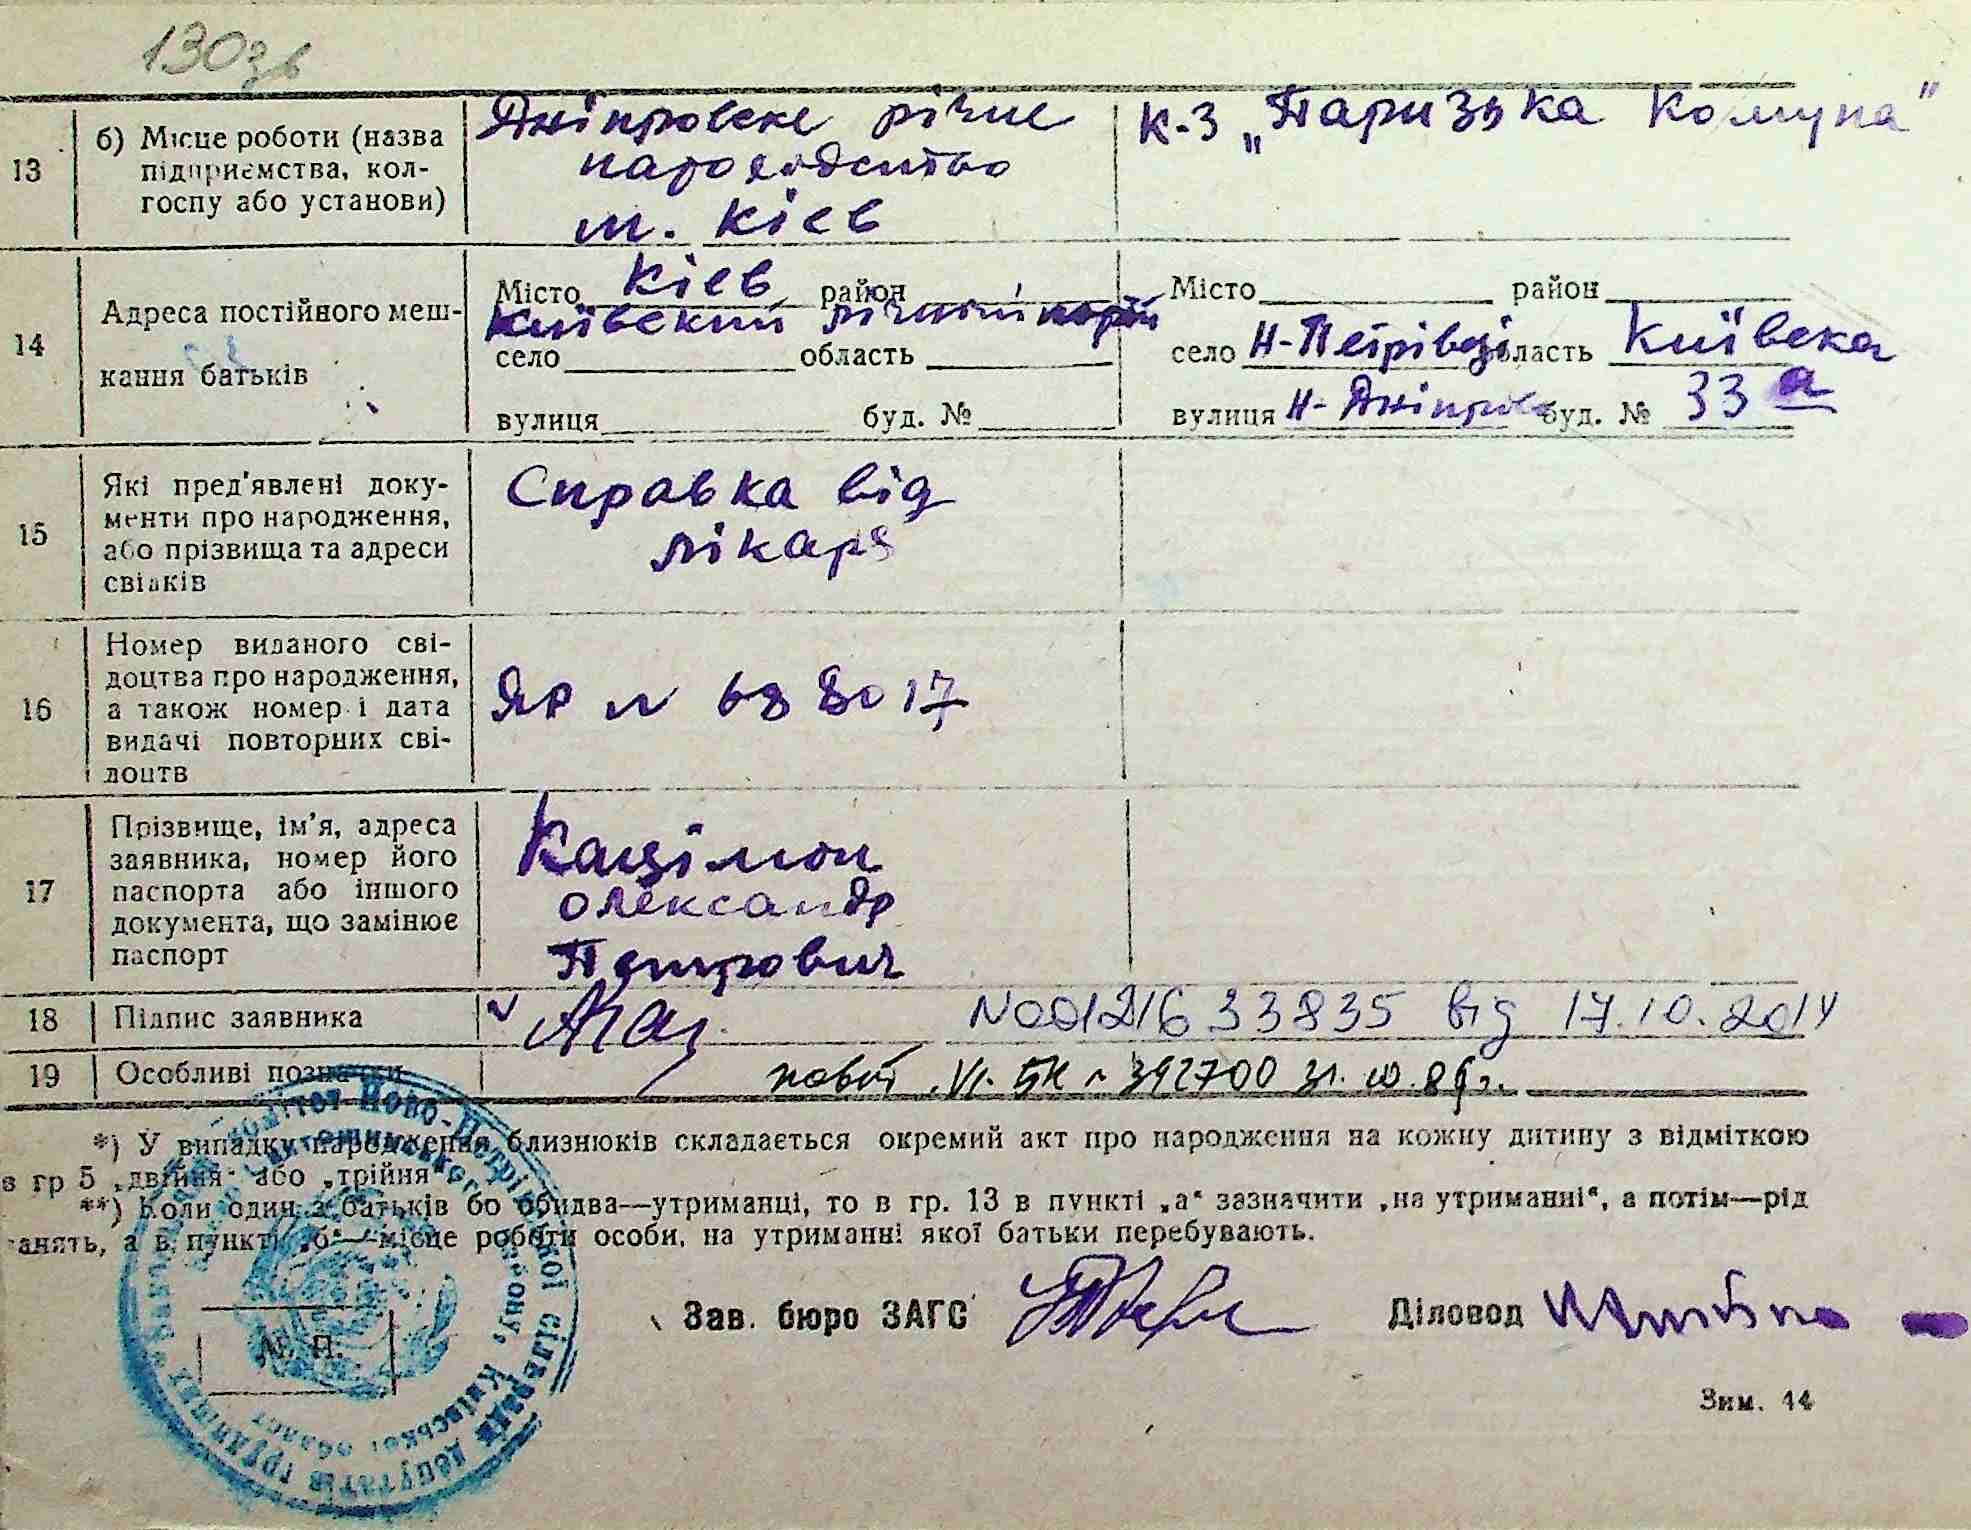 130зв
13 б) Місце роботи (назва підприємства, колгоспу або установи)
Дніпровске річне
пароходство
м. Кіев
К-З „Паризька Комуна"
14 Адреса постійного мешкання батьків
Місто Кіев район
Київский річний порт
село область
вулиця буд. №
Місто район
село Н-Петрівці область Київска
вулиця Н-Дніпров буд. № 33 а
15 Які пред'явлені документи про народження, або прізвища та адреси свідків
Справка від
лікаря
16 Номер виданого свідоцтва про народження, а також номер і дата видачі повторних свідоцтв
ЯР № 688017
17 Прізвище, ім'я, адреса заявника, номер його паспорта або іншого документа, що замінює паспорт
Кацімон
Олександр
Петрович
18 Підпис заявника
N00121633835 від 17.10.2014
19 Особливі позначки
повт. VI-БК № 392700 31.10.89р.
*) У випадку народження близнюків складається окремий акт про народження на кожну дитину з відміткою
в гр 5 „двійня" або „трійня"
**) Коли один з батьків бо обидва—утриманці, то в гр. 13 в пункті „а" зазначити „на утриманні", а потім—рід
занять, а в пункті „б"—місце роботи особи, на утриманні якої батьки перебувають.
Зав. бюро ЗАГС
Діловод
М. П.
Зим. 44